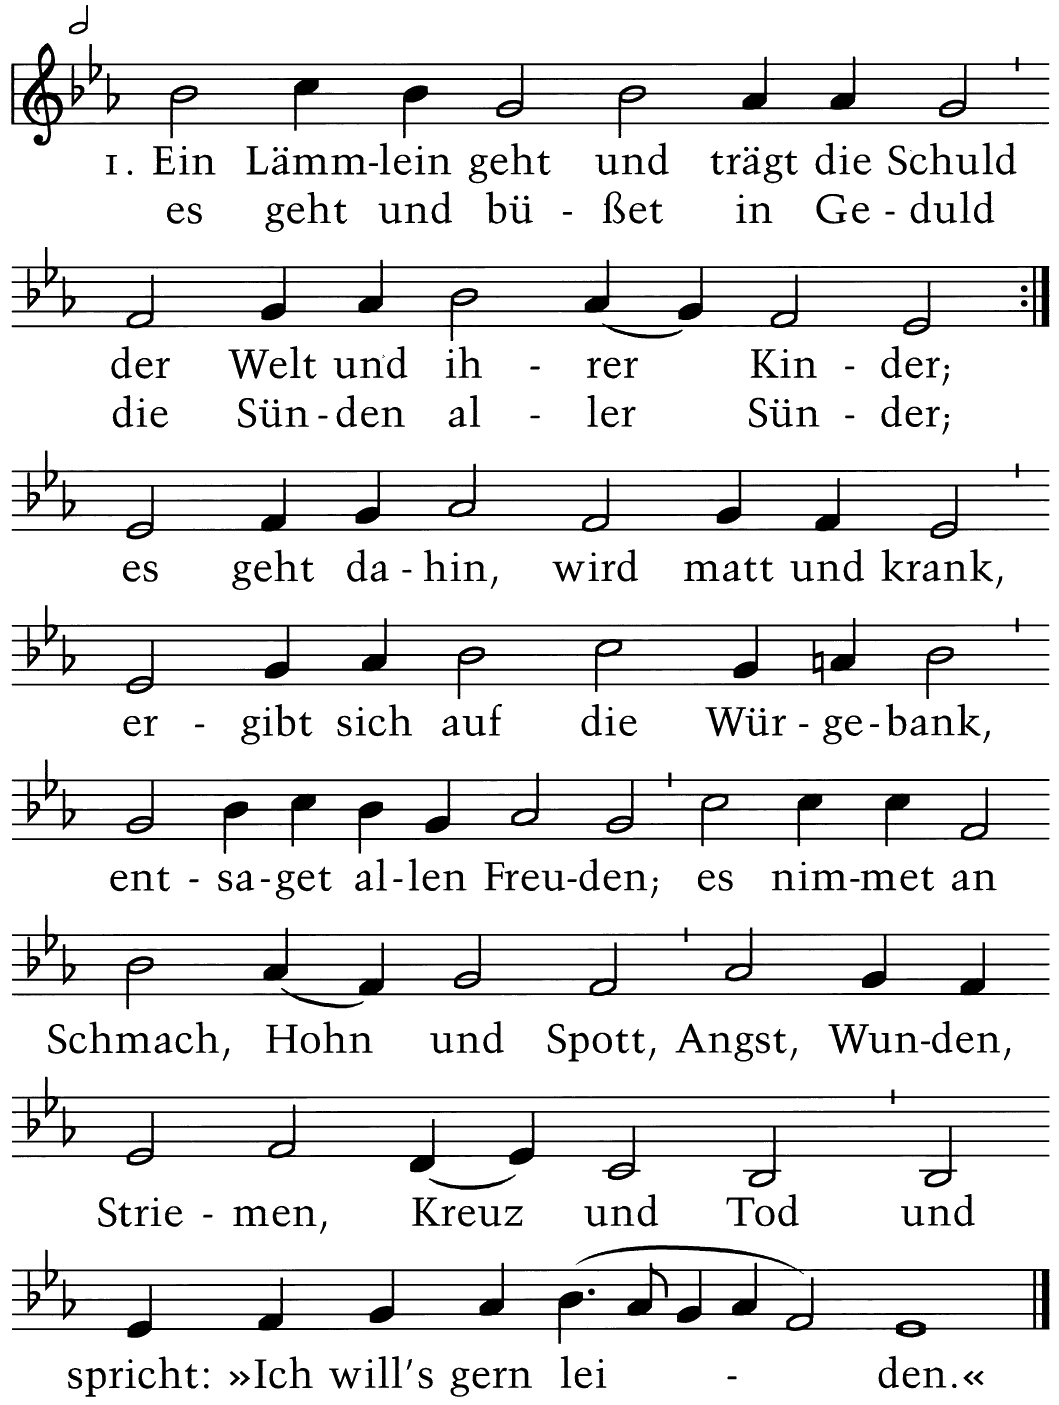 1. Ein Lämm-lein geht und trägt die Schuld
es geht und bü - ßet in Ge - duld
der Welt und ih - rer Kin - der;
die Sün - den al - ler Sün - der;
es geht da - hin, wird matt und krank,
er - gibt sich auf die Wür - ge - bank,
ent - sa - get al - len Freu - den; es nim - met an
Schmach, Hohn und Spott, Angst, Wun - den,
Strie - men, Kreuz und Tod und
spricht: »Ich will's gern lei - den.«